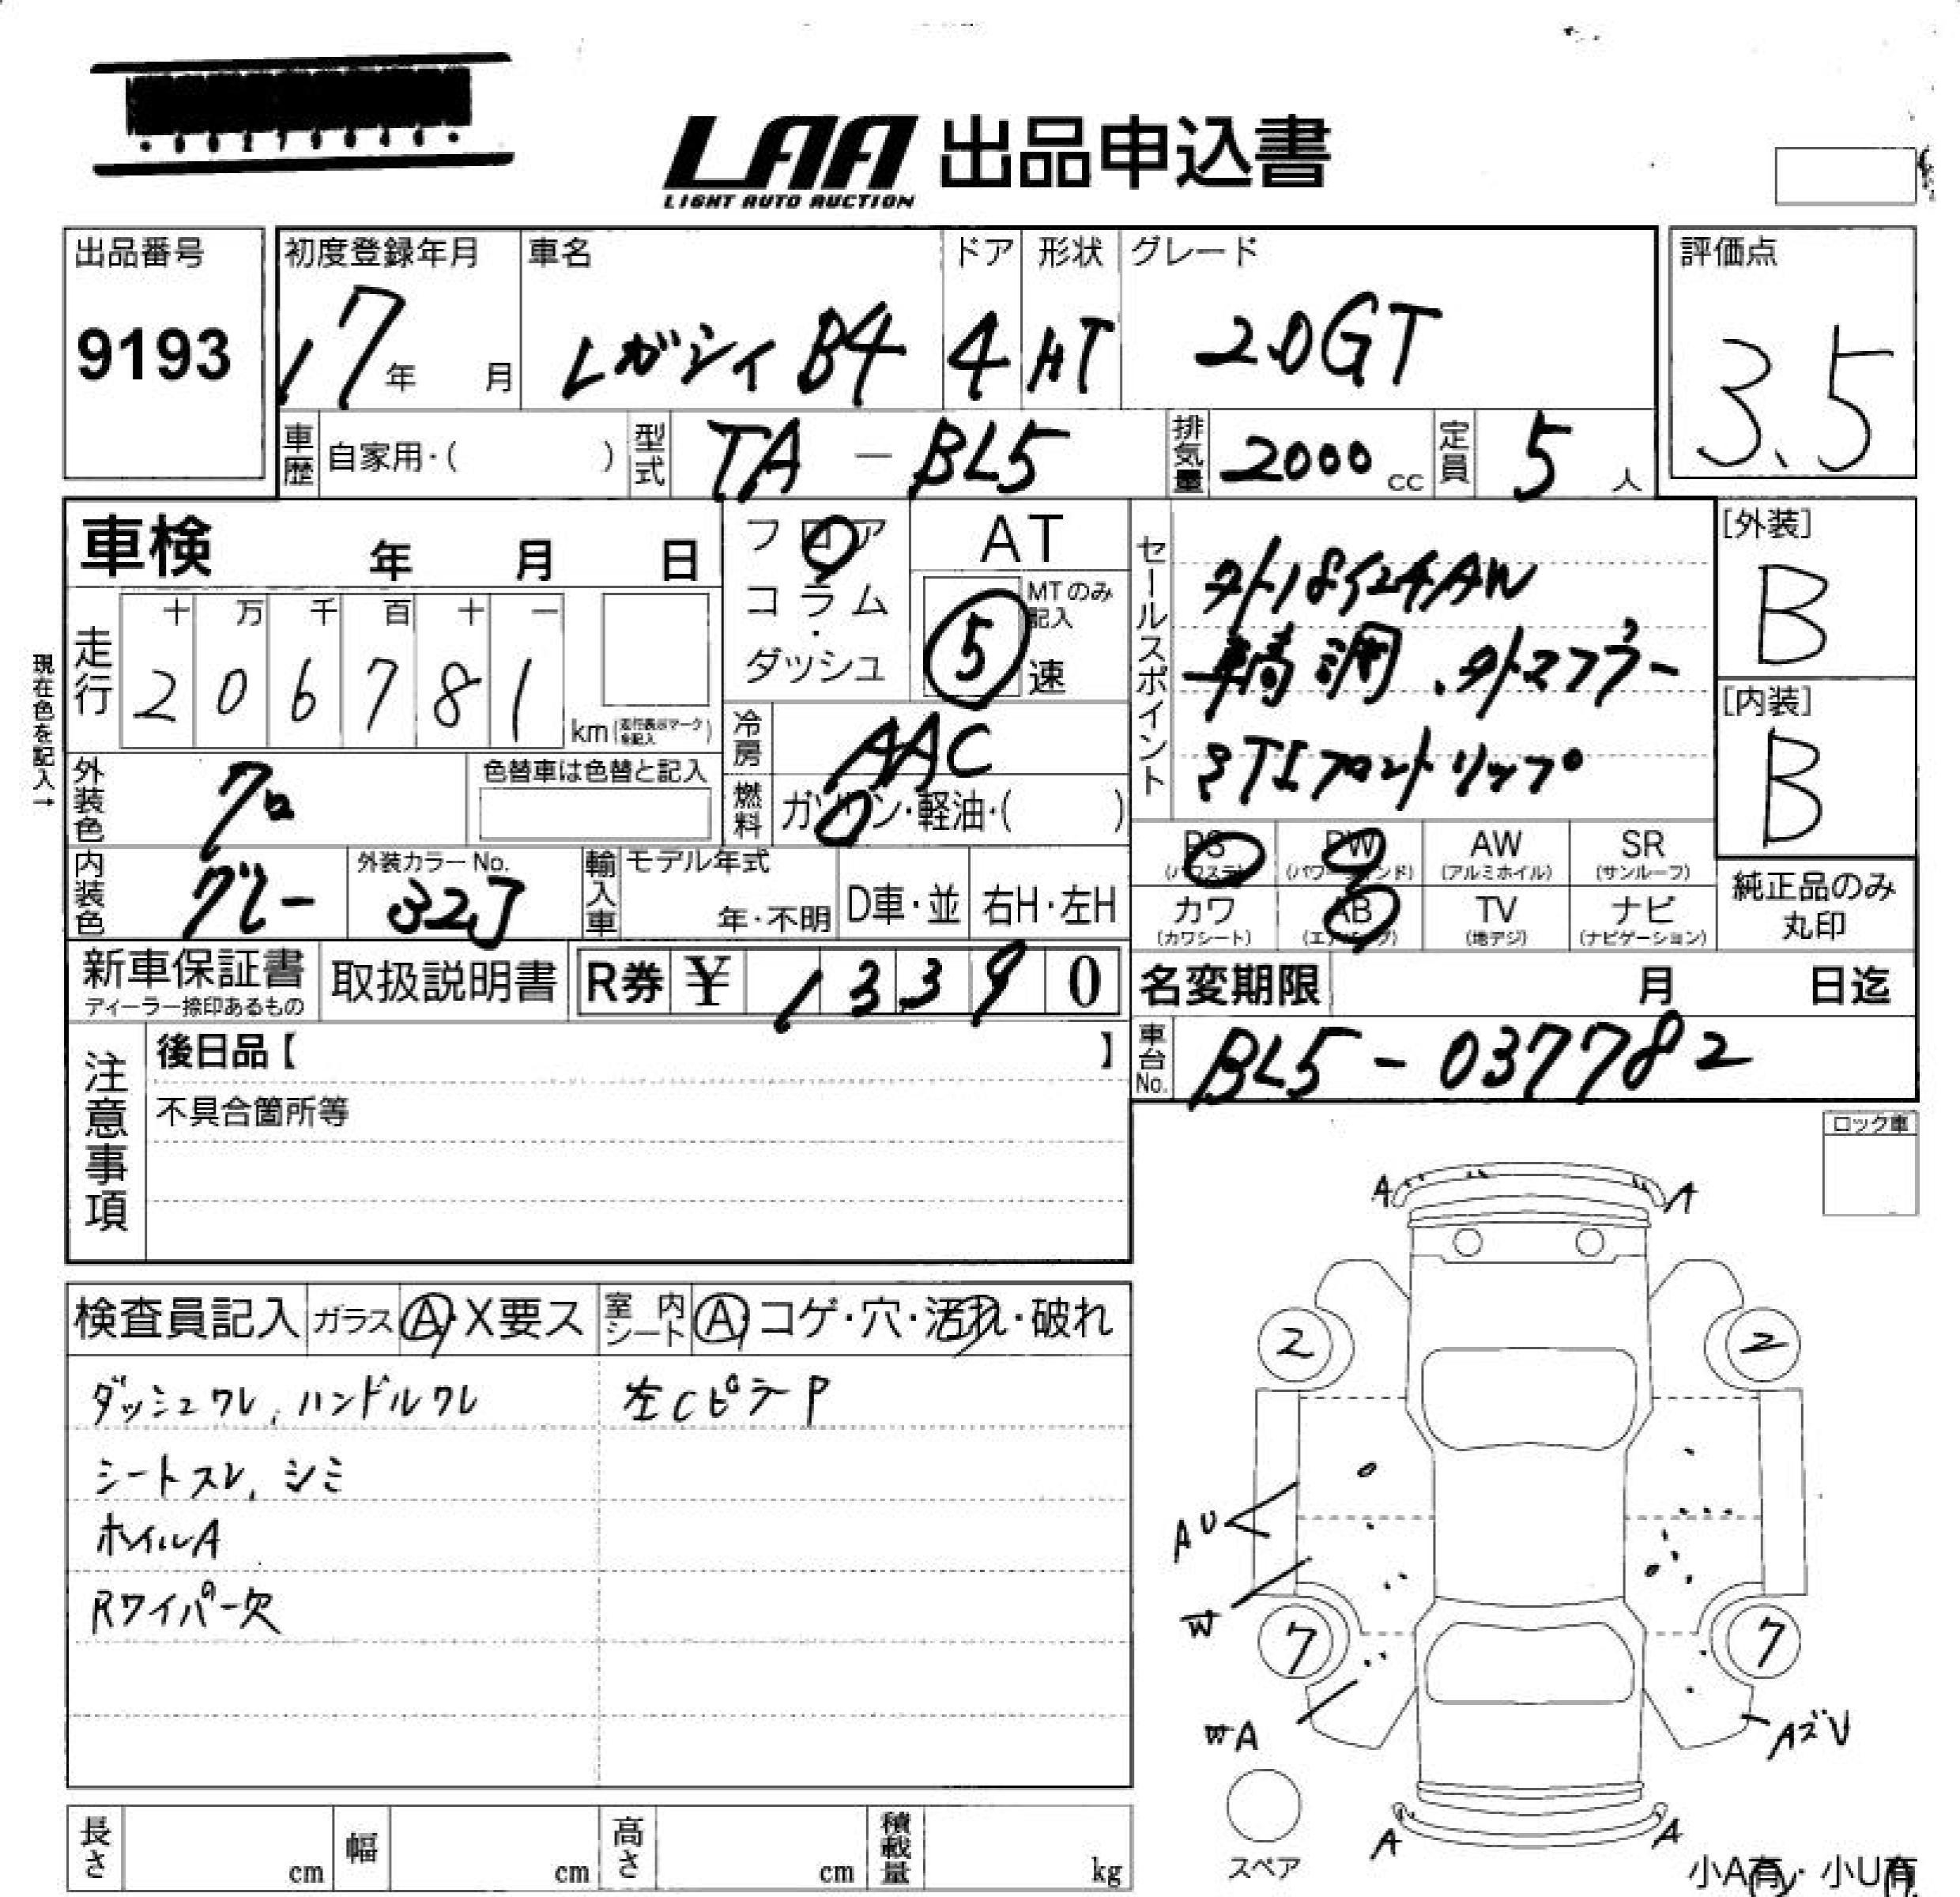 LAA 出品申込書
LIGHT AUTO AUCTION
出品番号
9193
初度登録年月
17年 月
車名
レガシィ B4
ドア
4
形状
HT
グレード
2.0GT
評価点
3.5
車歴 自家用・( )
型式 TA - BL5
排気量 2000 cc
定員 5 人
車検 年 月 日
フロア
コラム
・
ダッシュ
AT
MTのみ記入
5 速
セールスポイント
外18インチAW
車高調、外マフラー
STIフロントリップ
[外装]
B
[内装]
B
現在色を記入→
走行
十 万 千 百 十 一
2 0 6 7 8 1 km(走行表示マークを記入)
冷房 AAC
燃料 ガソリン・軽油・( )
外装色 クロ
色替車は色替と記入
内装色 グレー
外装カラーNo.
32J
輸入車 モデル年式
年・不明
D車・並
右H・左H
PS (パワステ)
PW (パワーウインド)
AW (アルミホイル)
SR (サンルーフ)
カワ (カワシート)
AB (エアバッグ)
TV (地デジ)
ナビ (ナビゲーション)
純正品のみ
丸印
新車保証書
ディーラー捺印あるもの
取扱説明書
R券 ¥ 13390
名変期限 月 日迄
車台No. BL5-037782
注意事項
後日品【 】
不具合箇所等
ロック車
検査員記入 ガラス A・X要ス 室内シート A・コゲ・穴・汚れ・破れ
ダッシュワレ, ハンドルワレ
左CピラーP
シートスレ, シミ
ホイルA
Rワイパー欠
A A
2 2
AU
W
7 7
WA
AズU
スペア
A A
小A有・小U有
長さ cm
幅 cm
高さ cm
積載量 kg